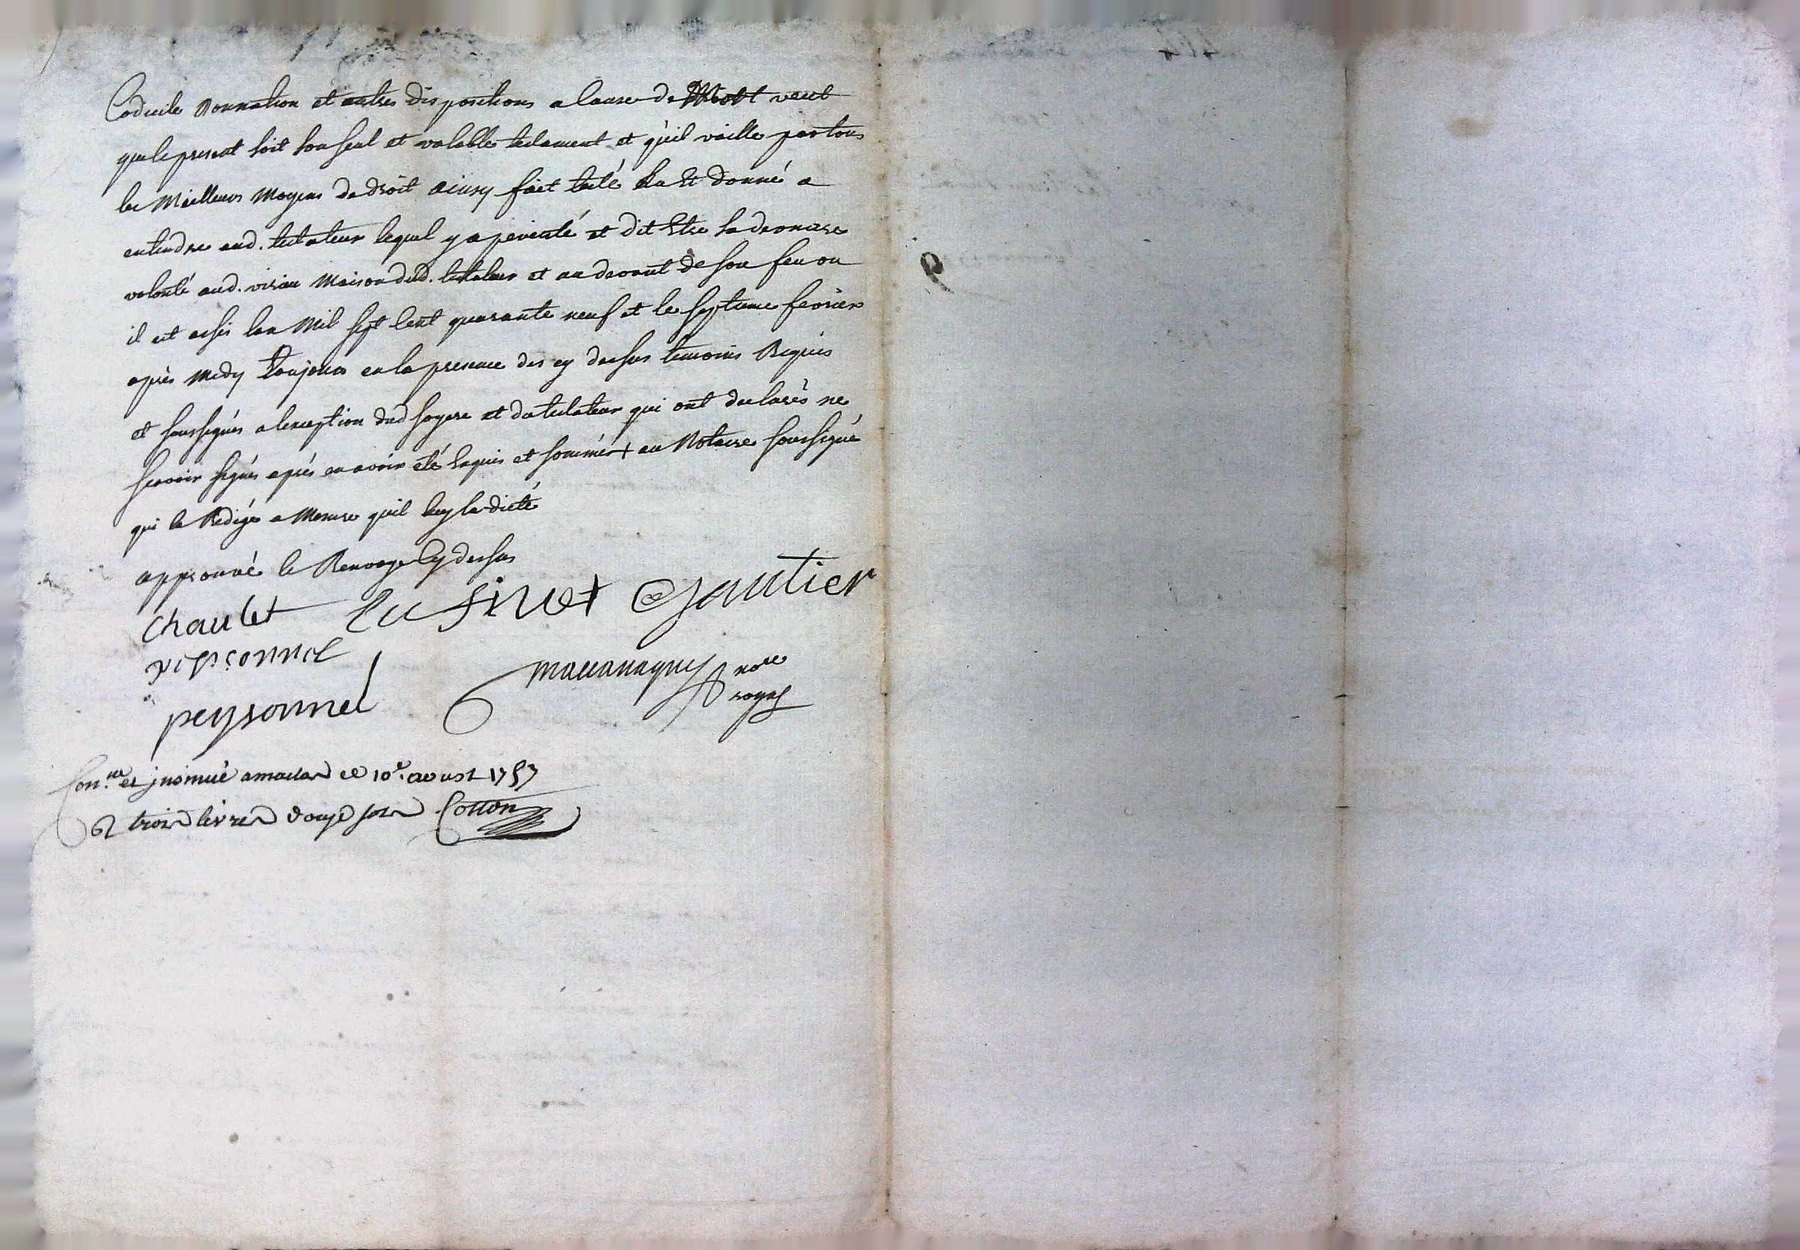 Codicile donnation et autres dispositions a cause de Mort veut
que le present soit son seul et valable testament et qu'il vaille par tous
les Meilleurs Moyens de droit ainsy fait leu Et donné a
entendre aud. testateur lequel y a percisté et dit Etre sa derniere
volonté aud. vizian Maison dud. testateur et au devant de son feu ou
il est assis l'an Mil sept cent quarante neuf et le septieme fevrier
après Midy toujours en la presence des cy dessus temoins Requis
et soussignés a l'exception dud soyere et du testateur qui ont declarés ne
scavoir signer après en avoir eté Enquis et sommés + au Notaire soussigné
qui la Redigé a Mesure qu'il luy la dicté
approuvé le Renvoye cy dessus
Chaulet Lusinet Gautier
peysonnel
peysonnel
not.re
royal
Con.lé et jnsinué a le 10.e aoust 1757
R trois livres douze sols Cotton